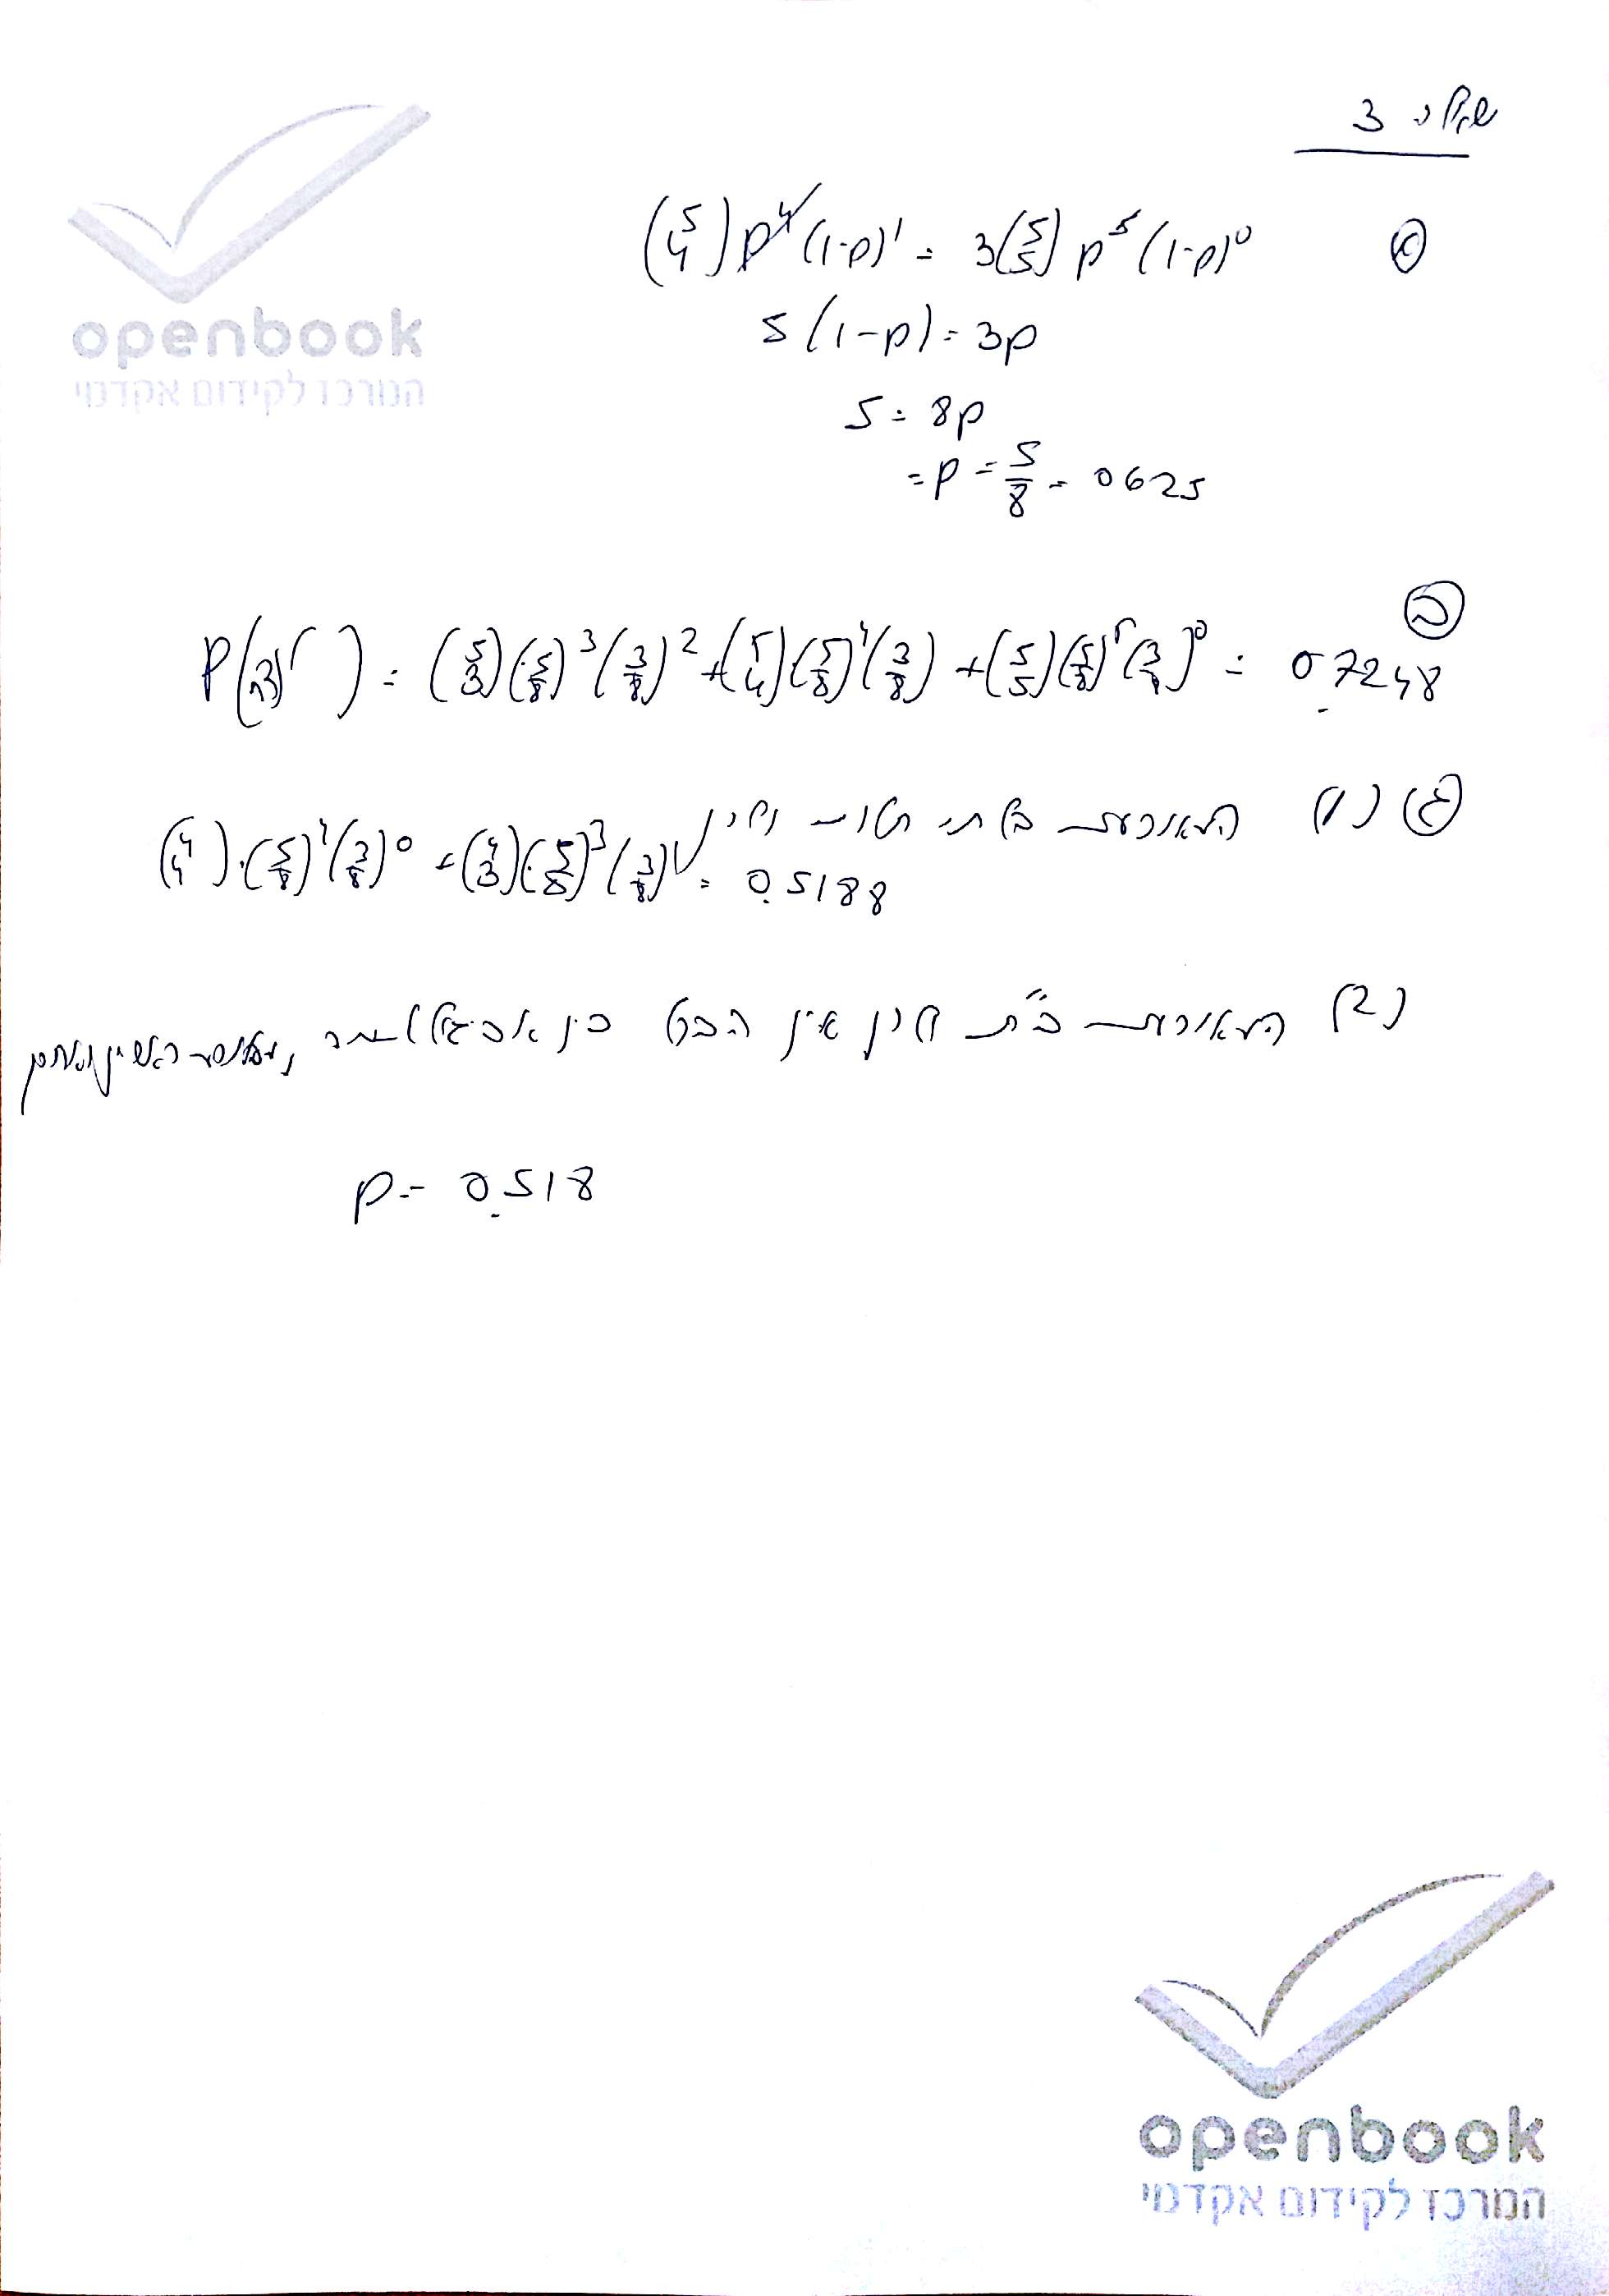 openbook
המרכז לקידום אקדמי
שאלה 3
(א) (5 4) p^4 (1-p)^1 = 3(5 5) p^5 (1-p)^0
5(1-p) = 3p
5 = 8p
= p = 5/8 = 0625
(ב) P( ) = (5 3)(5/8)^3(3/8)^2 + (5 4)(5/8)^4(3/8) + (5 5)(5/8)^5(3/8)^0 = 0.7248
(ג) (1) המאורעות בלתי תלויים ולכן
(4 4)·(5/8)^4(3/8)^0 + (4 3)(5/8)^3(3/8)^1 = 0.5188
(2) המאורעות ב"ת לכן אין הבדל בין
p = 0.518
openbook
המרכז לקידום אקדמי